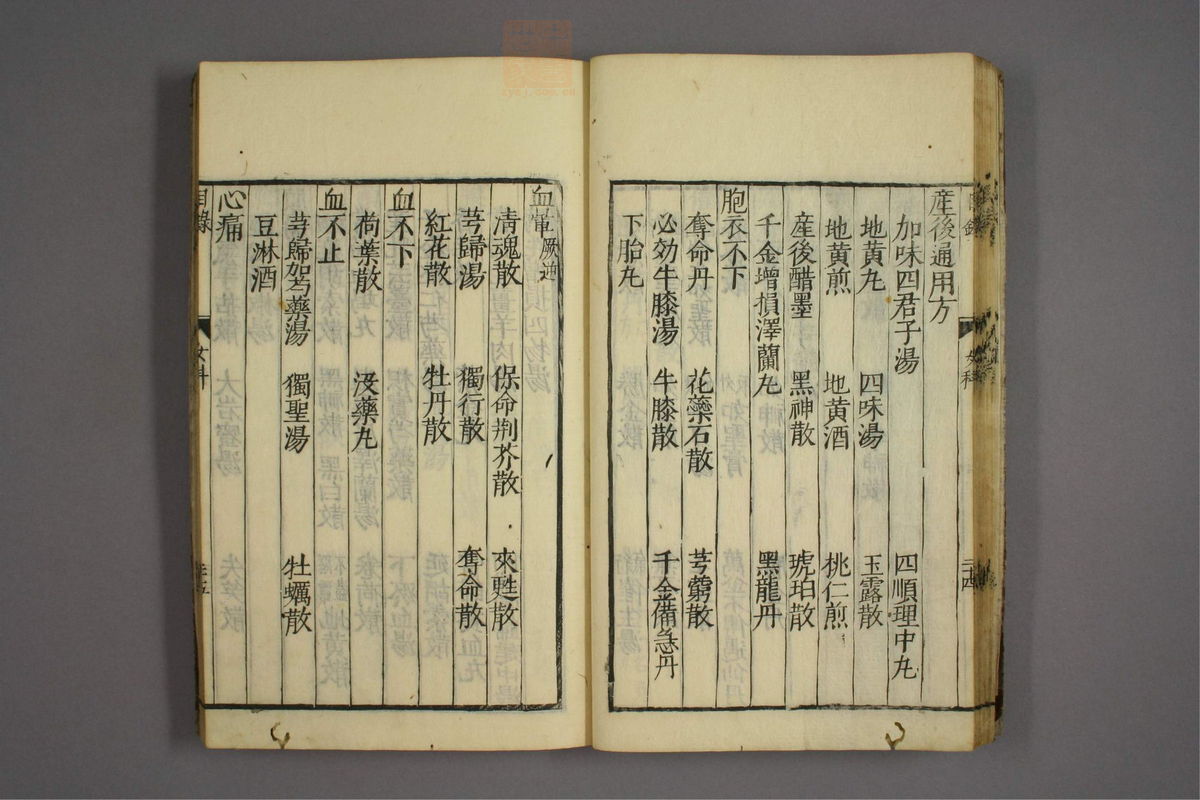 産後通用方
加味四君子湯 四順理中丸
地黄丸 四味湯 玉露散
地黄煎 地黄酒 桃仁煎
産後醋墨 黑神散 琥珀散
千金增損澤蘭丸 黑龍丹
胞衣不下
奪命丹 花蘂石散 芎藭散
必効牛膝湯 牛膝散 千金備急丹
下胎丸
血暈厥逆
清魂散 保命荆芥散 來甦散
芎歸湯 獨行散 奪命散
紅花散 牡丹散
血不下
荷葉散 没藥丸
血不止
芎歸芍藥湯 獨聖湯 牡蠣散
豆淋酒
心痛
目錄 女科